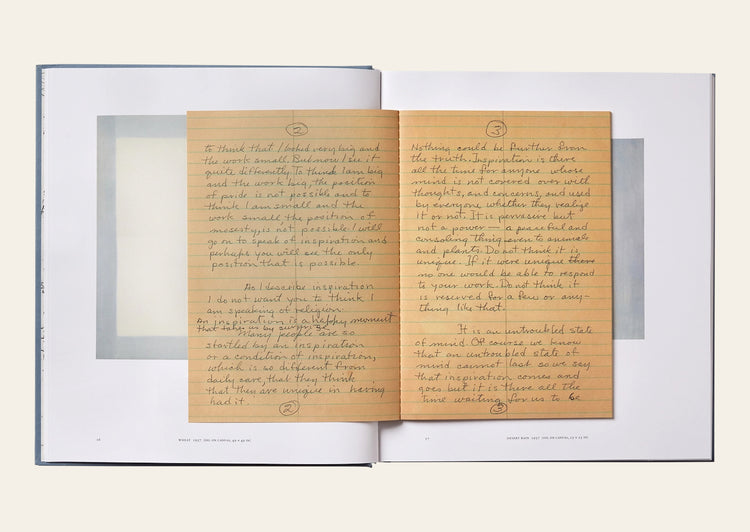 2
to think that I looked very big and
the work small. But now I see it
quite differently. To think I am big
and the work big, the position
of pride is not possible and to
think I am small and the
work small, the position of
modesty, is not possible. I will
go on to speak of inspiration and
perhaps you will see the only
position that is possible.
As I describe inspiration
I do not want you to think I
am speaking of religion.
An inspiration is a happy moment
that takes us by surprise.
Many people are so
startled by an inspiration
or a condition of inspiration,
which is so different from
daily care, that they think
that they are unique in having
had it.
2
3
Nothing could be further from
the truth. Inspiration is there
all the time for anyone whose
mind is not covered over with
thoughts and concerns, and used
by everyone whether they realize
it or not. It is pervasive but
not a power — a peaceful and
consoling thing even to animals
and plants. Do not think it is
unique. If it were unique
no one would be able to respond
to your work. Do not think it
is reserved for a few or any-
thing like that.
It is an untroubled state
of mind. Of course we know
that an untroubled state of
mind cannot last so we say
that inspiration comes and
goes but it is there all the
time waiting for us to be
3
16
WHEAT 1957 OIL ON CANVAS, 49 × 49 IN.
17
DESERT RAIN 1957 OIL ON CANVAS, 25 × 25 IN.